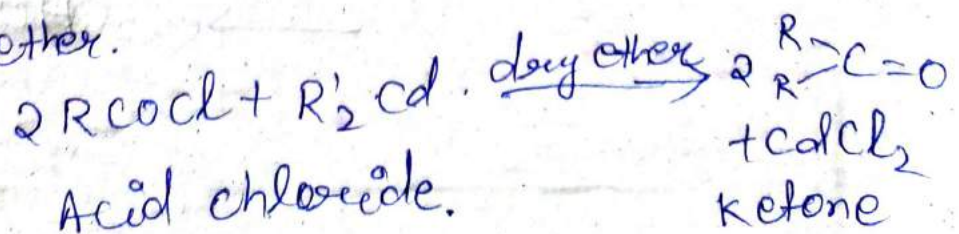 ether.
2 RCOCl + R'2 Cd . dry ether → 2 R R >C=O
+ CdCl2
Acid chloride. Ketone